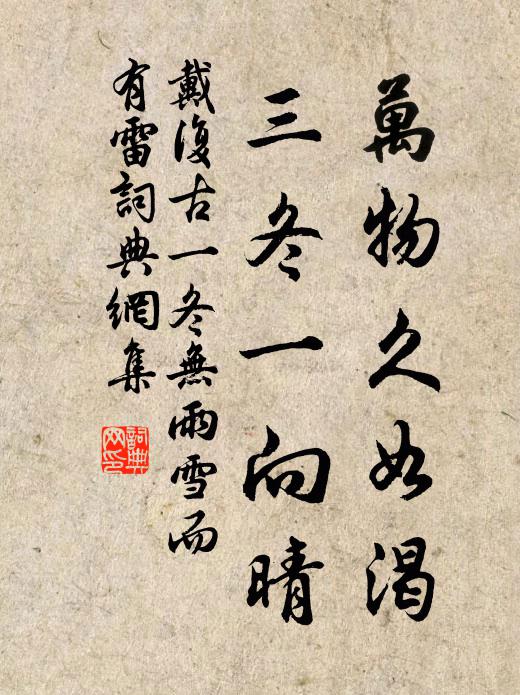 萬物久如渴
三冬一向晴
戴復古一冬無雨雪而
有雷詞典網集
詞典网印